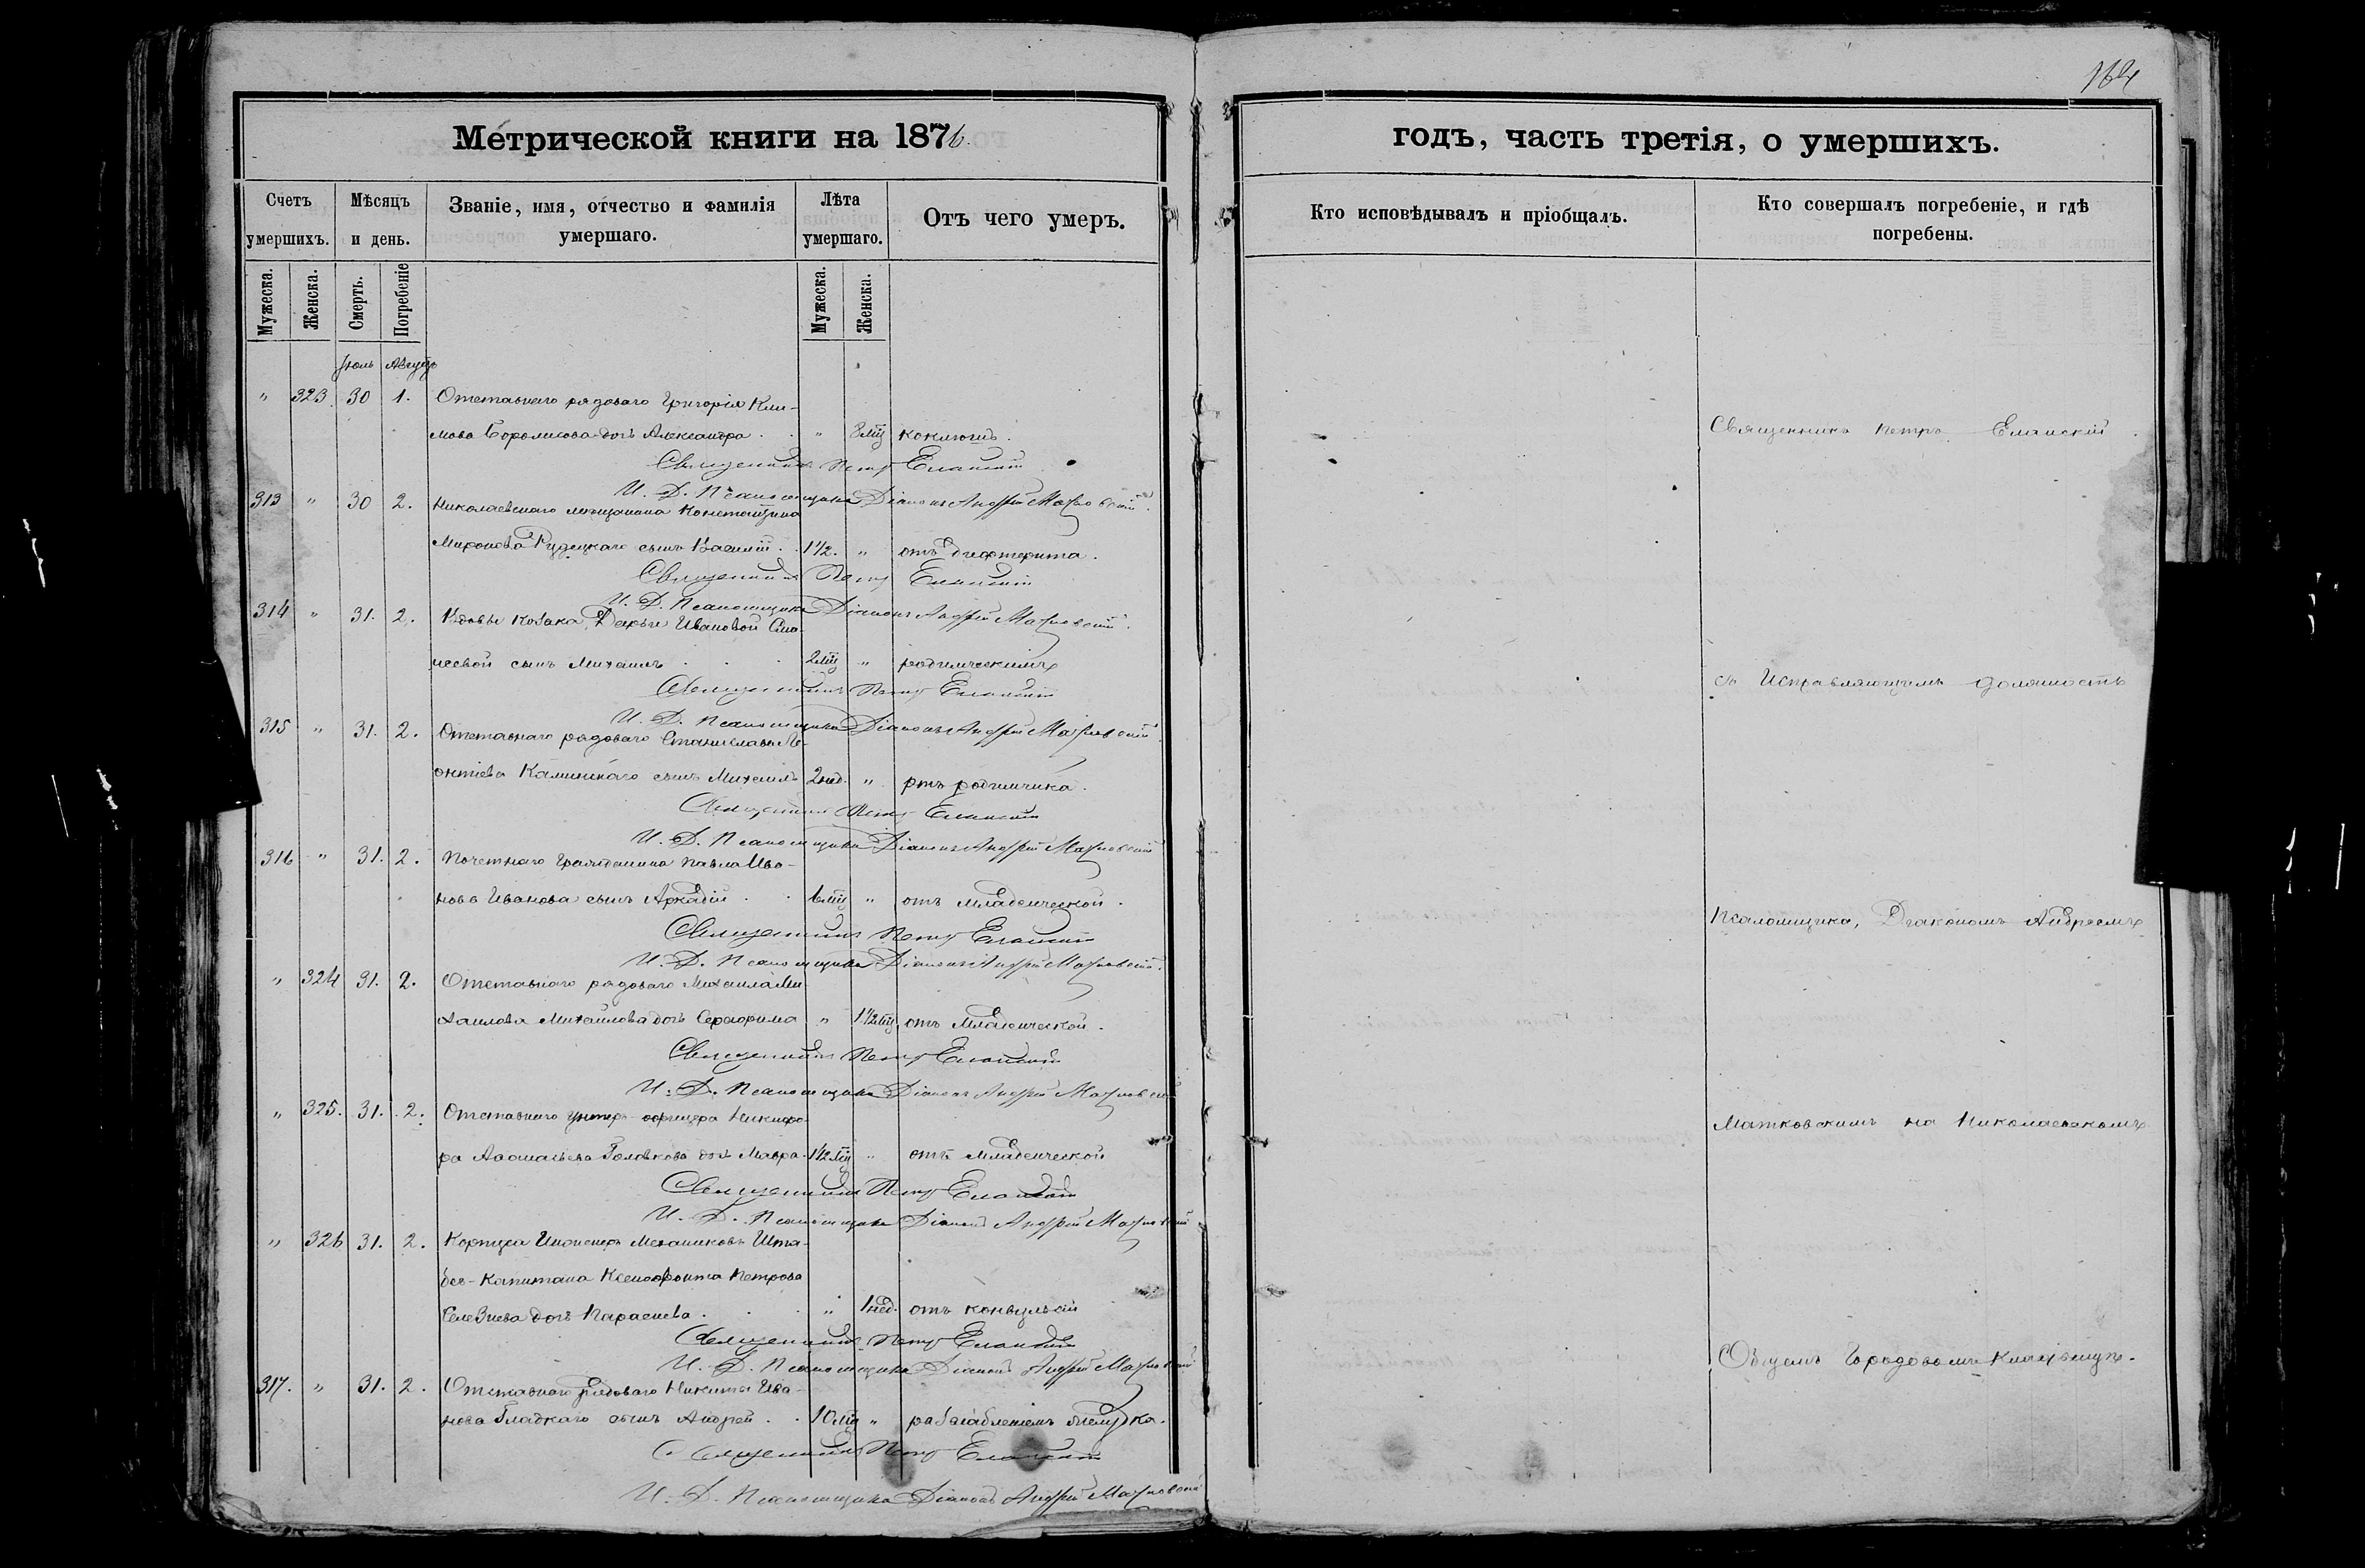 164
Метрической книги на 1876.
годъ, часть третія, о умершихъ.
Счетъ умершихъ.
Мѣсяцъ и день.
Званіе, имя, отчество и фамилія умершаго.
Лѣта умершаго.
Отъ чего умеръ.
Кто исповѣдывалъ и пріобщалъ.
Кто совершалъ погребеніе, и гдѣ погребены.
Мужеска.
Женска.
Смерть.
Погребеніе
Мужеска.
Женска.
Іюль Августъ
" 323 30 1. Отставнаго рядоваго Григорія Кли-
мова дочь Александра . " 8 мц коклюшъ.
Священникъ Петръ Еланскій
И. Д. Псаломщика Діаконъ Андрей Матковскій.
313 " 30 2. Николаевскаго мѣщанина Константина
Миронова Рудецкаго сынъ Василій . 1½. " отъ дифтерита.
Священникъ Петръ Еланскій
И. Д. Псаломщика Діаконъ Андрей Матковскій.
314 " 31. 2. Вдовы козака Дарьи Ивановой
сынъ Михаилъ . . . 2 мц " родимческимъ
Священникъ Петръ Еланскій
И. Д. Псаломщика Діаконъ Андрей Матковскій.
315 " 31. 2. Отставнаго рядоваго Станислава Ле-
онтіева Калинскаго сынъ Михаилъ 2 нед. " отъ родимчика.
Священникъ Петръ Еланскій
И. Д. Псаломщика Діаконъ Андрей Матковскій
316 " 31. 2. Почетнаго Гражданина Павла Ива-
нова Иванова сынъ Аркадій . . 6 мц " отъ младенческой.
Священникъ Петръ Еланскій
И. Д. Псаломщика Діаконъ Андрей Матковскій.
" 324 31. 2. Отставнаго рядоваго Михаила Ми-
хаилова Михайлова дочь Серафима " 1½ мц отъ младенческой.
Священникъ Петръ Еланскій
И. Д. Псаломщика Діаконъ Андрей Матковскій
" 325. 31. 2. Отставнаго унтеръ-офицера Никифо-
ра Афанасьева Головкова дочь Мавра. 1½ мц " отъ младенческой
Священникъ Петръ Еланскій
И. Д. Псаломщика Діаконъ Андрей Матковскій
" 326 31. 2. Корпуса Инженеръ Механиковъ Шта-
бсъ-Капитана Ксенофонта Петрова
Селезнева дочь Параскева . . . " 1 нед. отъ конвульсій
Священникъ Петръ Еланскій
И. Д. Псаломщика Діаконъ Андрей Матковскій
317. " 31. 2. Отставнаго рядоваго Никиты Ива-
нова Гладкаго сынъ Андрей . . 10 мц " разслабленіемъ желудка.
Священникъ Петръ Еланскій
И. Д. Псаломщика Діаконъ Андрей Матковскій
Священникъ Петръ Еланскій
съ Исправляющимъ должность
Псаломщика, Діакономъ Андреемъ
Матковскимъ на Николаевскомъ
Общемъ Городовомъ Кладбищѣ.